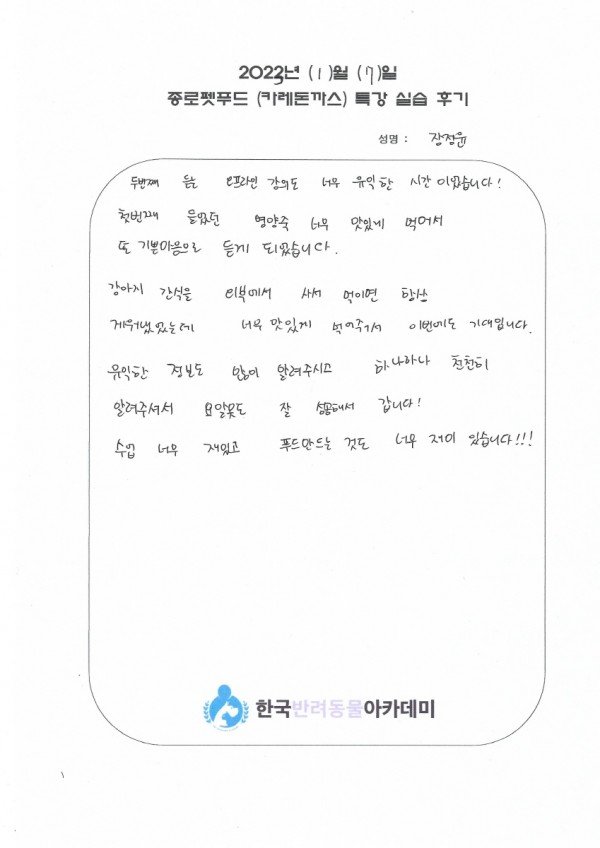 2023년 (1)월 (7)일
종로펫푸드 (카레돈까스) 특강 실습 후기
성명 : 장정윤
두번째 듣는 오프라인 강의도 너무 유익한 시간이었습니다!
첫번째 들었던 영양죽 너무 맛있게 먹어서
또 기쁜마음으로 듣게 되었습니다.
강아지 간식을 외부에서 사서 먹이면 항상
게워냈었는데 너무 맛있게 먹어주어서 이번에도 기대됩니다.
유익한 정보도 많이 알려주시고 하나하나 천천히
알려주셔서 요알못도 잘 성공해서 갑니다!
수업 너무 재밌고 푸드만드는 것도 너무 재미 있습니다!!!
한국반려동물아카데미